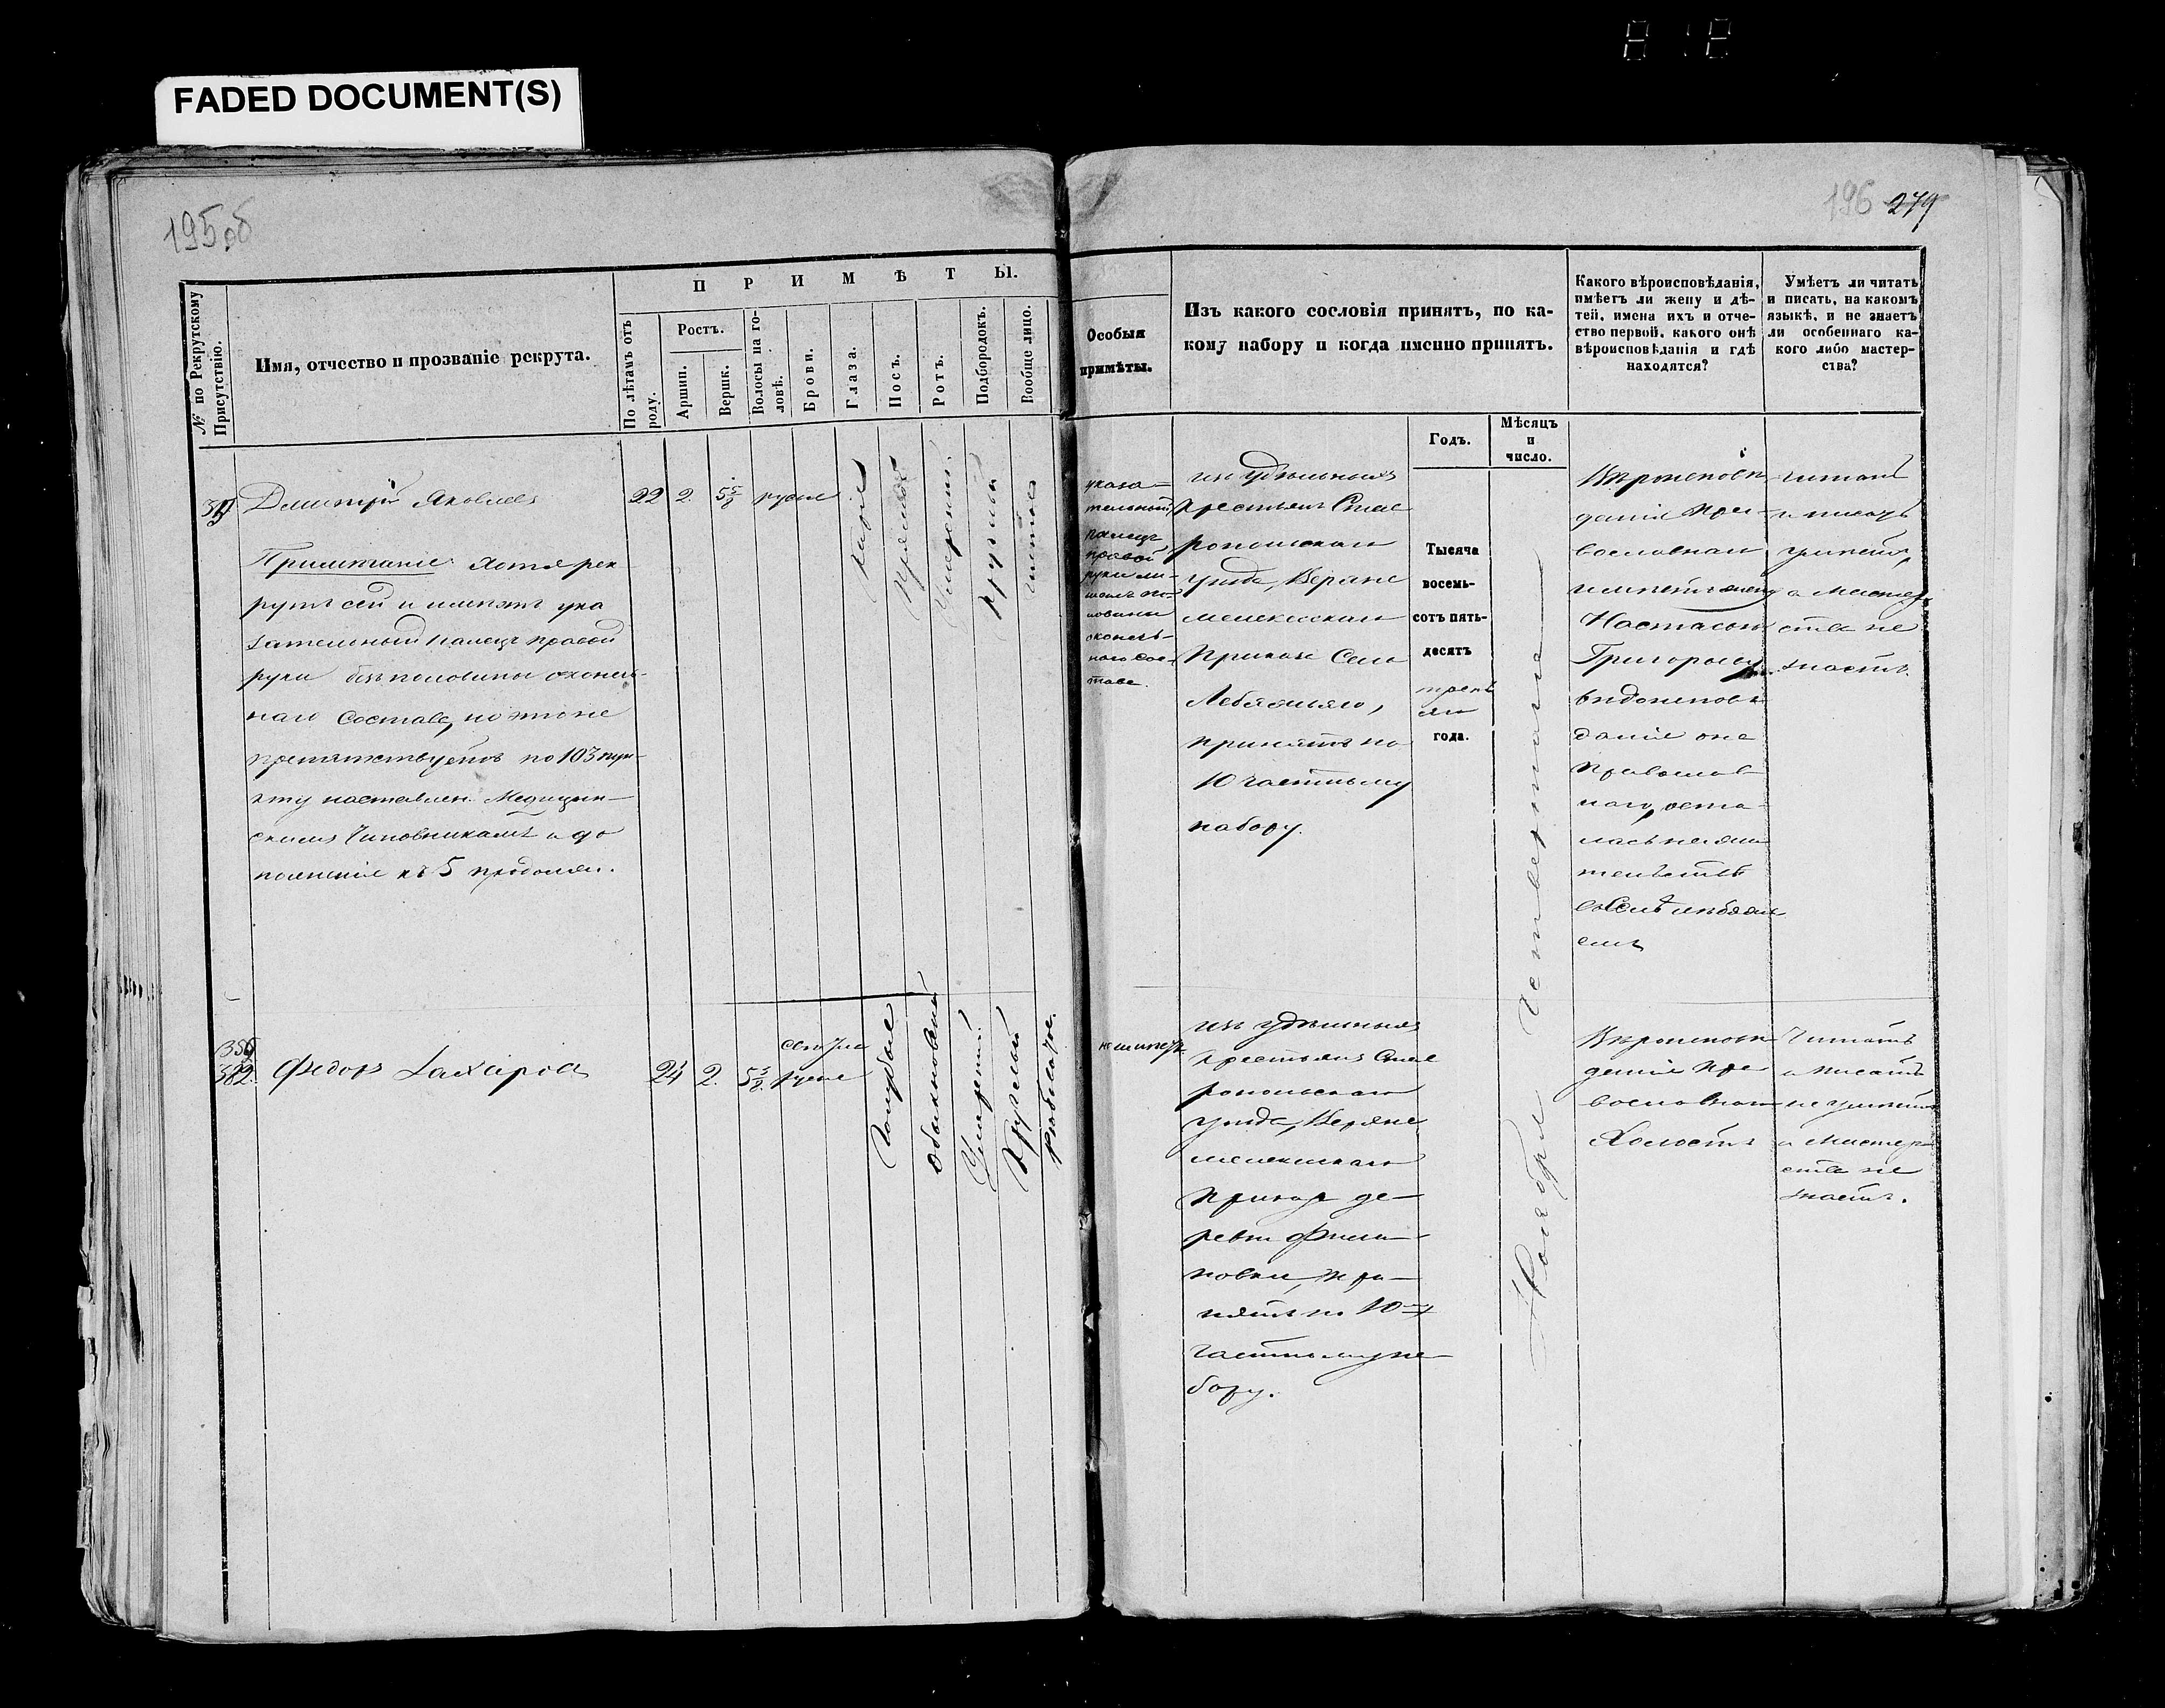 FADED DOCUMENT(S)
195об
196 279
№ по Рекрутскому Присутствію.
Имя, отчество и прозваніе рекрута.
ПРИМѢТЫ.
По лѣтамъ отъ роду.
Ростъ.
Аршин.
Вершк.
Волосы на головѣ.
Брови.
Глаза.
Носъ.
Ротъ.
Подбородокъ.
Вообще лицо.
Особыя
примѣты.
Изъ какого сословія принятъ, по ка-
кому набору и когда именно принятъ.
Годъ.
Мѣсяцъ
и
число.
Какого вѣроисповѣданія,
имѣетъ ли жену и дѣ-
тей, имена ихъ и отче-
ство первой, какого онѣ
вѣроисповѣданія и гдѣ
находятся?
Умѣетъ ли читать
и писать, на какомъ
языкѣ, и не знаетъ
ли особеннаго ка-
кого либо мастер-
ства?
Дмитрій Яковлевъ
22 2. 5 5/8 русые
карие
прямой
умеренный
круглый
чистое
Примѣчаніе: Хотя рек-
рутъ сей и имѣетъ ука
зательный палецъ правой
руки безъ половины оконеч-
наго состава, но это не
препятствуетъ по 103 пун-
кту наставлен. Медицин-
скимъ Чиновникамъ и до
полненія къ 5 продолжен.
указа-
тельный
палецъ
правой
руки ли-
шенъ по-
ловины
оконеч-
наго сос-
тава.
изъ удѣльныхъ
крестьянъ Став
ропольскаго
уѣзда, Верхне
мелекесскаго
Приказа Села
Лебяжьяго,
принятъ по
10 частному
набору.
Тысяча
восемь-
сотъ пять-
десятъ
третъ
яго
года.
Ноября Четвертаго
Вѣроисповѣ-
данія Пра-
вославнаго
имѣетъ жену
Настасью
Григорьеву
вѣроисповѣ
данія она
православ
наго, оста-
лась на жи
тельствѣ
въ Селѣ Лебяжь
емъ
читать
и писать
умѣетъ,
а мастер
ства не
знаетъ.
382.
Федоръ Захаровъ
24 2. 5 5/8.
светло
русые
голубые
обыкновенный
Умеренный
Круглый
рябоватое.
не имѣетъ
изъ удѣльныхъ
крестьянъ Став
ропольскаго
уѣзда, Верхне
мелекескаго
приказа де-
ревни Фили-
повки, при-
нятъ по 10-му
частному на-
бору.
Вѣроисповѣ
данія Пра
вославнаго
Холостъ
Читать
и писать
не умѣетъ
и мастер-
ства не
знаетъ.